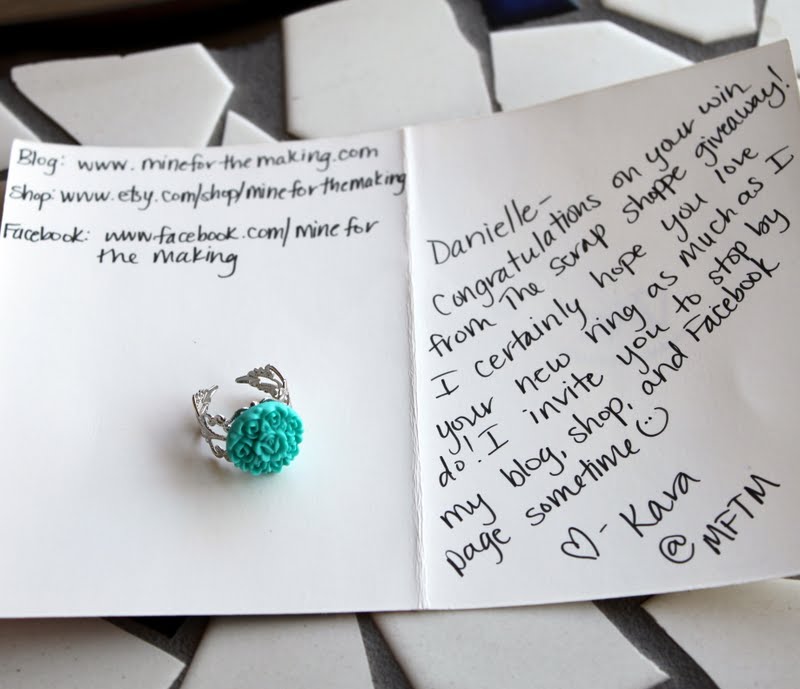 Blog: www.mineforthemaking.com
Shop: www.etsy.com/shop/mineforthemaking
Facebook: www.facebook.com/mine for
the making
Danielle-
Congratulations on your win
from The scrap shoppe giveaway!
I certainly hope you love
your new ring as much as I
do! I invite you to stop by
my blog, shop, and Facebook
page sometime☺
♡- Kara
@ MFTM